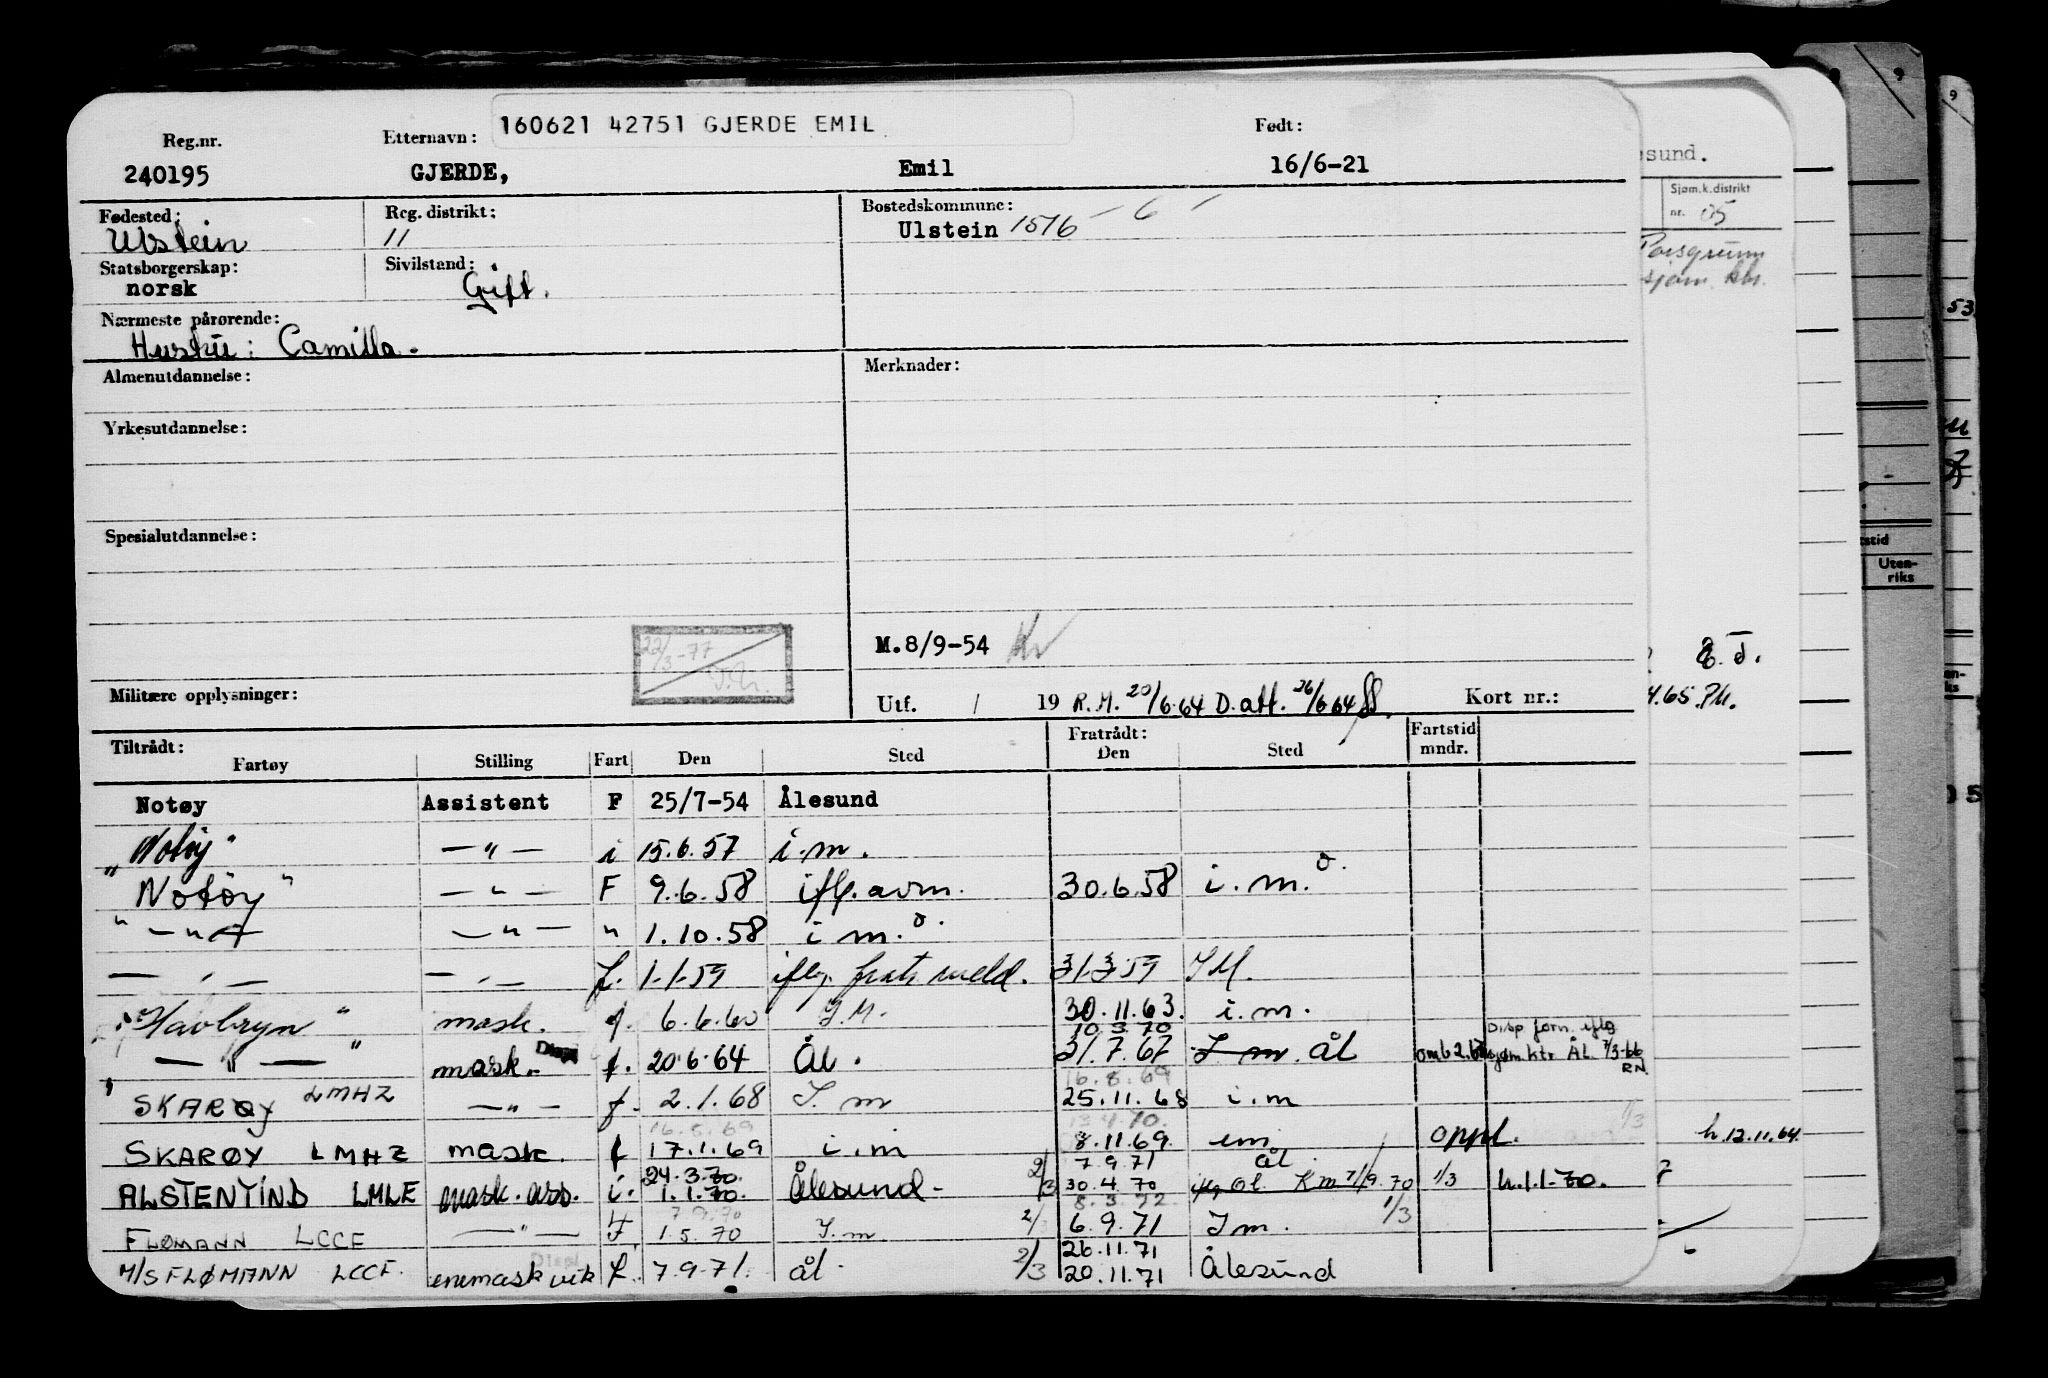 160621 42751 GJERDE EMIL
Reg.nr. Etternavn: Født:
240195 GJERDE, Emil 16/6-21
Fødested: Reg. distrikt: Bostedskommune:
Ulstein 11 Ulstein 1516 - 6 -
Statsborgerskap: Sivilstand:
norsk Gift.
Nærmeste pårørende:
Hustru: Camilla.
Almenutdannelse: Merknader:
Yrkesutdannelse:
Spesialutdannelse:
22/3-77
M.8/9-54
Militære opplysninger: Utf. / 19 R.M. 20/6.64 D.att. 26/6 64 Kort nr.:
Tiltrådt: Fratrådt: Fartstid
Fartøy Stilling Fart Den Sted Den Sted mndr.
Notøy Assistent F 25/7-54 Ålesund
"Notøy" — " — i 15.6.57 i.m.
"Notøy" — " — F 9.6.58 iflg. avm. 30.6.58 i.m.
" — " — " — " — " 1.10.58 i m.
— " — — " — f. 1-1-59 iflg. fratr. meld. 31.3.59 I.M.
"Havbryn" mask. f. 6.6.60 I.M. 30.11.63. i.m.
10.3.70 Disp forn. iflg
— " — " mask. Disp f. 20.6.64 Ål. 31.7.67 I m. Ål sjøm.ktr ÅL 7/3-66 RN
16.8.69
SKARØY LMHZ — " — f. 2.1.68 I. m 25.11.68 i.m
16.8.69 13.4.70.
SKARØY LMHZ mask. f 17.1.69 i.m 8.11.69. im oppl.
24.3.70. 7.9.71 ål
ALSTENTIND LMLE mask. ass. i. 1.1.70. Ålesund - 2/3 30.4.70 Km 7/9.70 1/3 h.1.1-70.
7.9.70 8.3.72
FLØMANN LCCF — " — F 1.5.70 I.m 2/3 6.9.71 I m. 1/3
26.11.71
M/S FLØMANN LCCF. enemask vik f. 7.9.71. ål 2/3 20.11.71 Ålesund
sund.
Sjøm.k.distrikt
nr. 05
Porsgrunn
sjøm. ktr.
4.65.
h.12.11.64
53
Uten-
riks